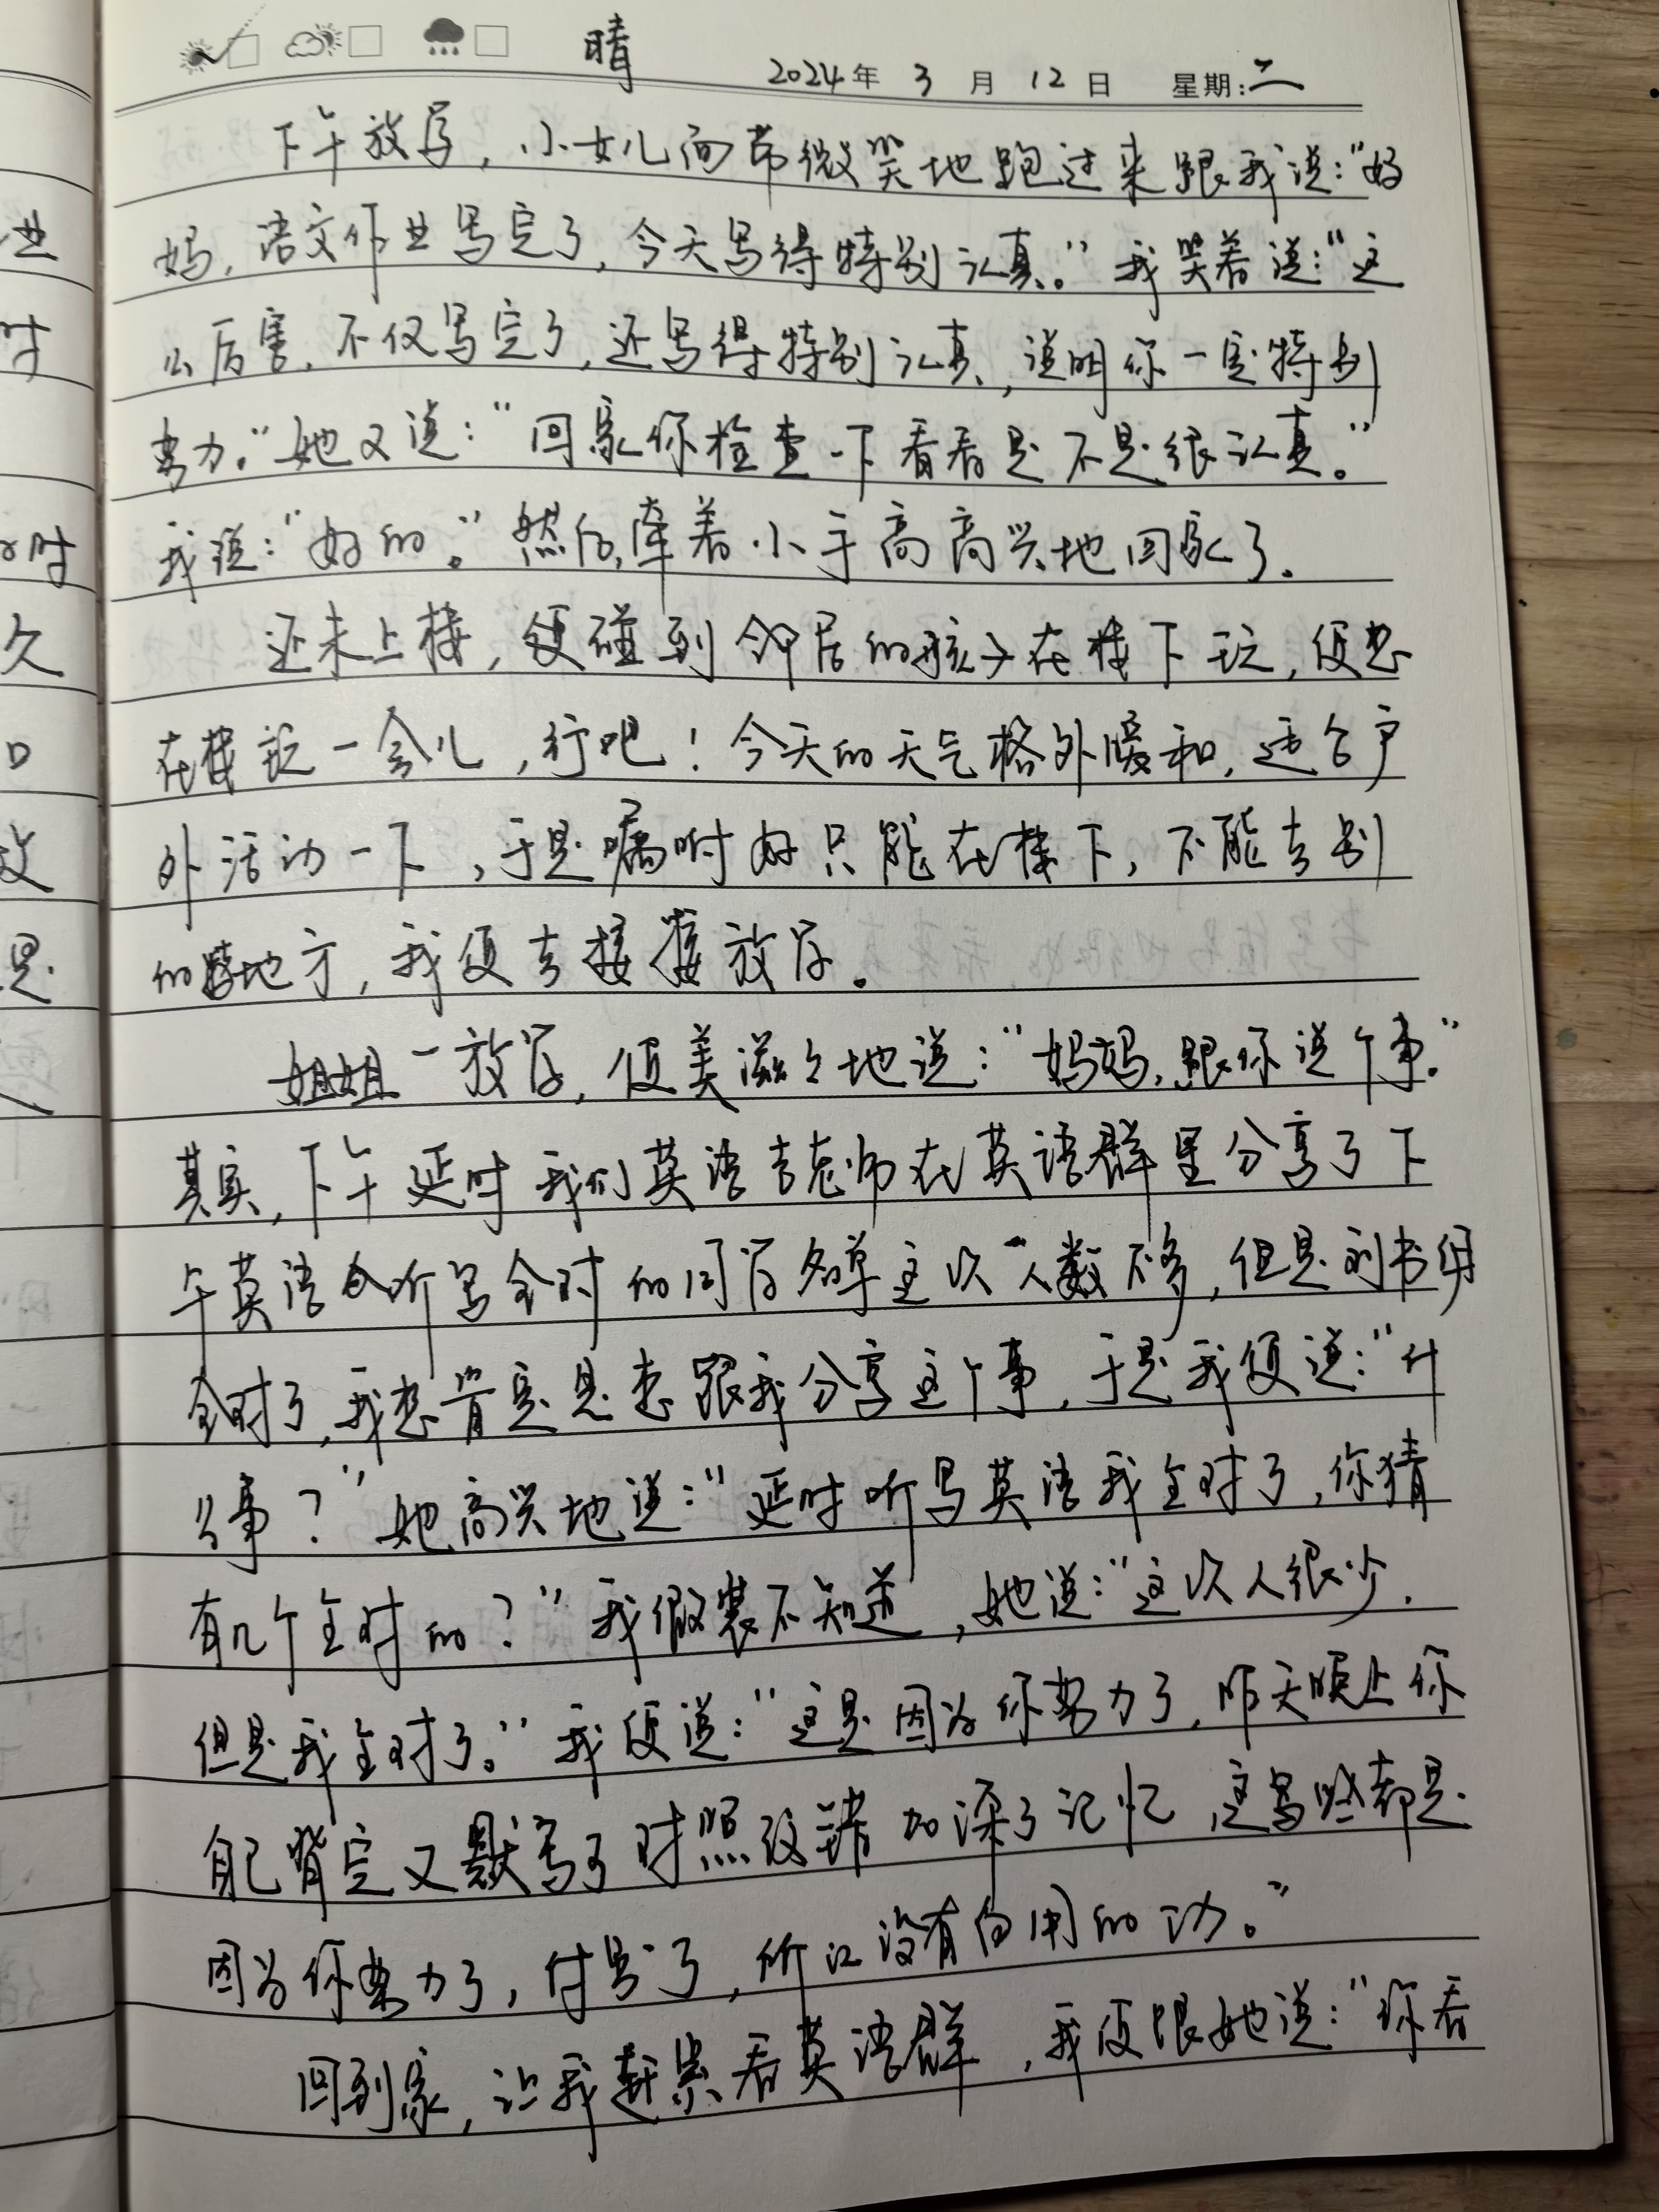 晴 2024年 3 月 12 日 星期:二
下午放学,小女儿面带微笑地跑过来跟我说:“妈
妈,语文作业写完了,今天写得特别认真。”我笑着说:“这
么厉害,不仅写完了,还写得特别认真,说明你一定特别
努力。”她又说:“回家你检查一下看看是不是很认真。”
我说:“好的。”然后,牵着小手高高兴地回家了.
还未上楼,便碰到邻居的孩子在楼下玩,便想
在楼玩一会儿,行吧!今天的天气格外暖和,适合户
外活动一下,于是嘱咐好只能在楼下,不能去别
的地方,我便去接 放学。
姐姐一放学,便美滋々地说:“妈妈,跟你说个事。”
其实,下午延时我们英语老师在英语群里分享了下
午英语听写全对的同学名单这次人数不多,但是刘书
全对了,我想肯定是想跟我分享这个事,于是我便说:“什
么事?”她高兴地说:“延时听写英语我全对了,你猜
有几个全对的?”我假装不知道,她说:“这次人很少.
但是我全对了。”我便说:“这是因为你努力了,昨天晚上你
自己背完又默写了对照改错加深了记忆,这些都是
因为你努力了,付出了,所以没有白用的功。”
回到家,让我赶紧看英语群,我便跟她说:“你看
业
时
时
久
口
文
是